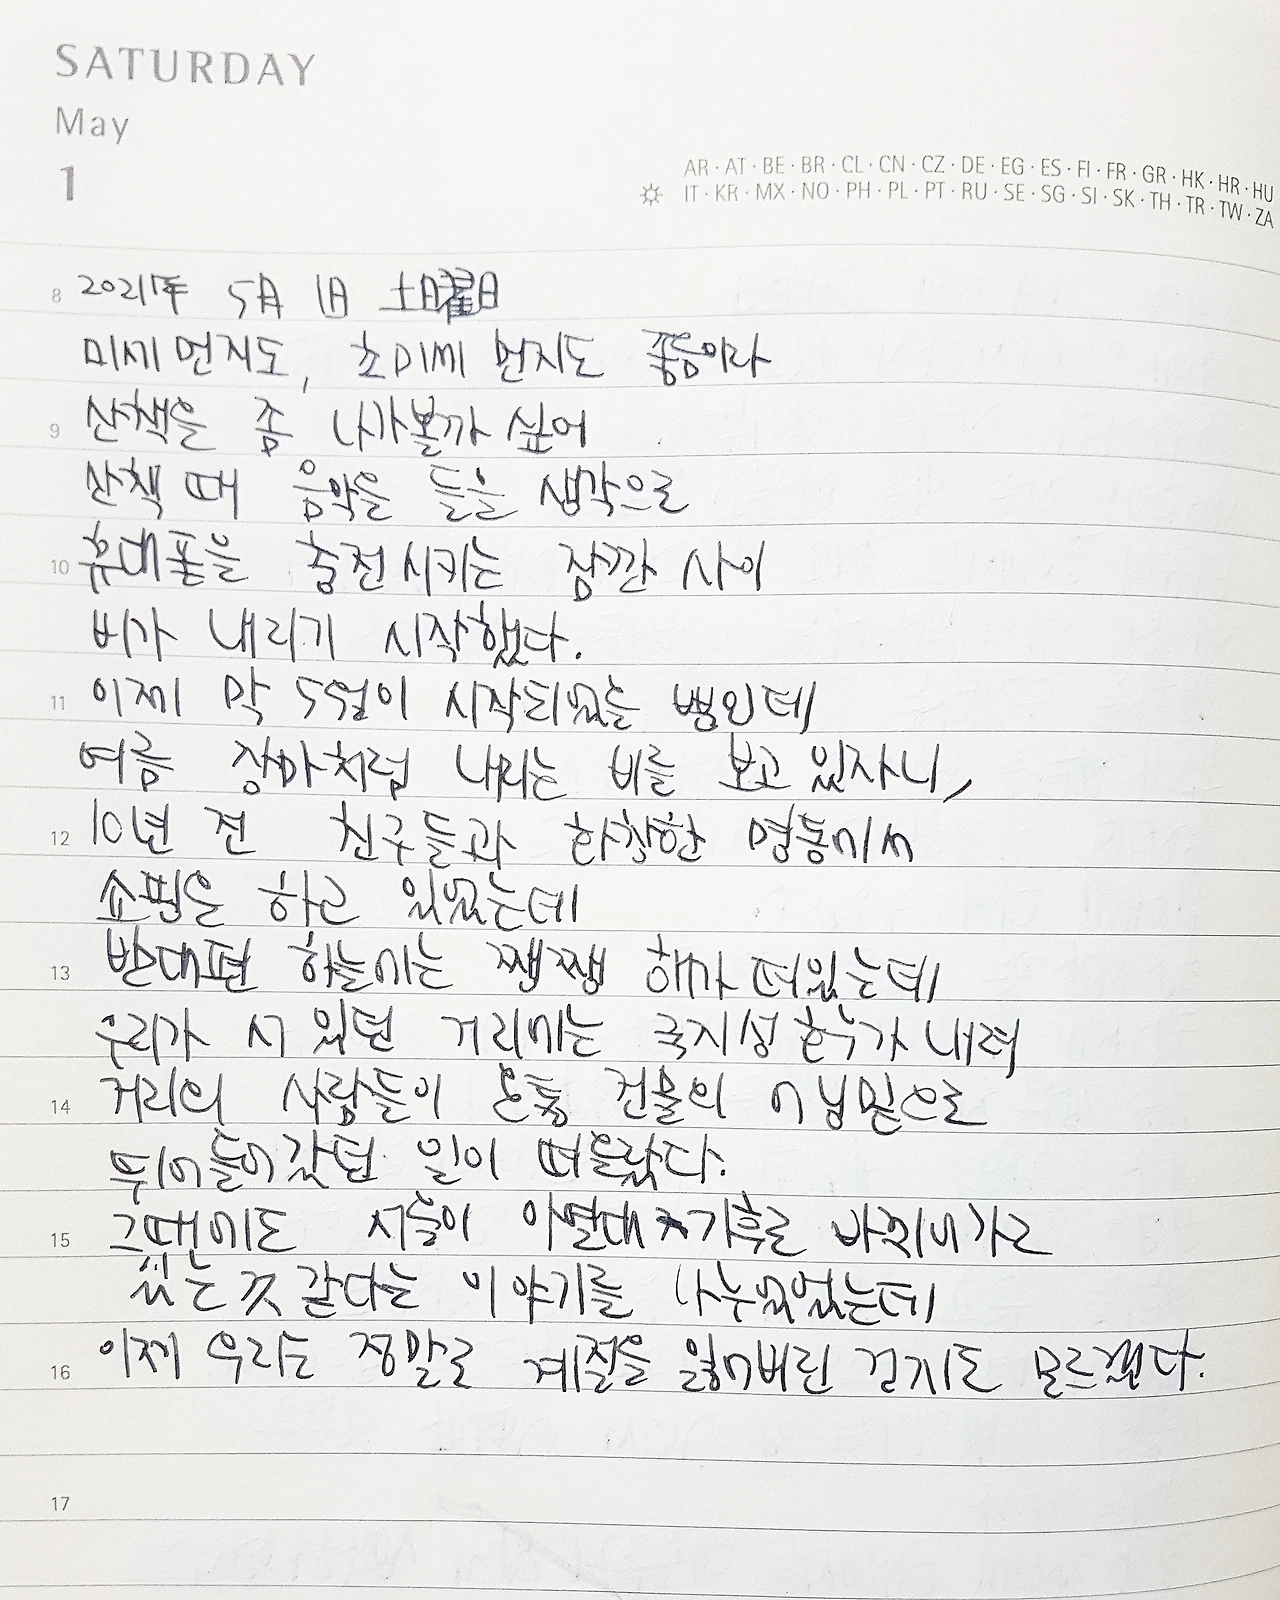 SATURDAY
May
1
AR · AT · BE · BR · CL · CN · CZ · DE · EG · ES · FI · FR · GR · HK · HR · HU
IT · KR · MX · NO · PH · PL · PT · RU · SE · SG · SI · SK · TH · TR · TW · ZA
8 2021年 5月 1日 土曜日
미세먼지도, 초미세 먼지도 좋음이라
9 산책을 좀 나가볼까 싶어
산책 때 음악을 들을 생각으로
10 휴대폰을 충전시키는 잠깐 사이
비가 내리기 시작했다.
11 이제 막 5월이 시작되었을 뿐인데
여름 장마처럼 내리는 비를 보고 있자니,
12 10년 전 친구들과 화창한 명동에서
쇼핑을 하고 있었는데
13 반대편 하늘에는 쨍쨍 해가 떠있는데
우리가 서 있던 거리에는 국지성 호우가 내려
14 거리의 사람들이 온통 건물의 처마밑으로
뛰어들어갔던 일이 떠올랐다.
15 그때에도 서울이 아열대 기후로 바뀌어가고
있는 것 같다는 이야기를 나누었었는데
16 이제 우리는 정말로 계절을 잃어버린 건지도 모르겠다.
17